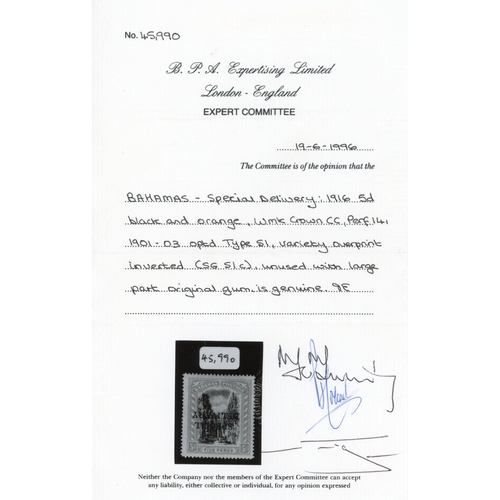 No. 45,990
B. P. A. Expertising Limited
London - England
EXPERT COMMITTEE
19-6-1996
The Committee is of the opinion that the
BAHAMAS - Special Delivery: 1916 5d
black and orange, Wmk Crown CC, Perf 14,
1901-03 optd Type S1, variety overprint
inverted (SG S1c), unused with large
part original gum, is genuine.
45,990
FIVE PENCE
Neither the Company nor the members of the Expert Committee can accept
any liability, either collective or individual, for any opinion expressed